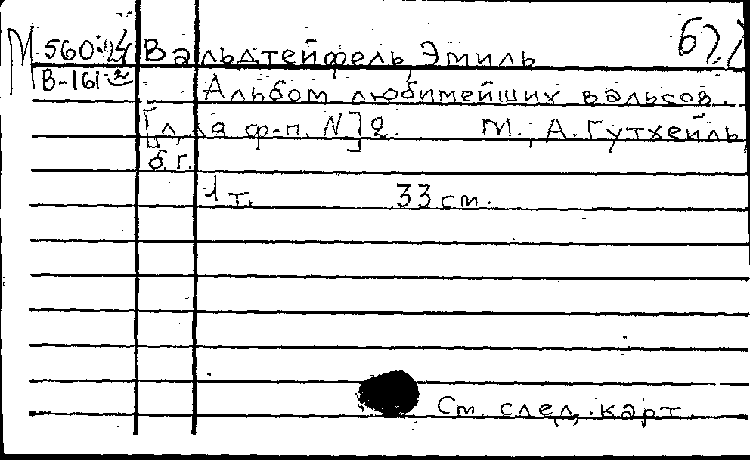 М 560 Вальдтейфель, Эмиль
В-161
Альбом любимейших вальсов.
[Для ф-п. N] 2. М., А. Гутхейль,
б. г.
1 т. 33 см.
См. след. карт.